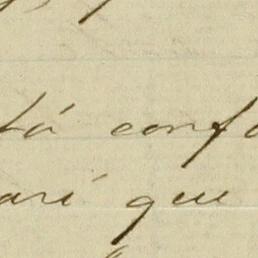 tá confo
aré que